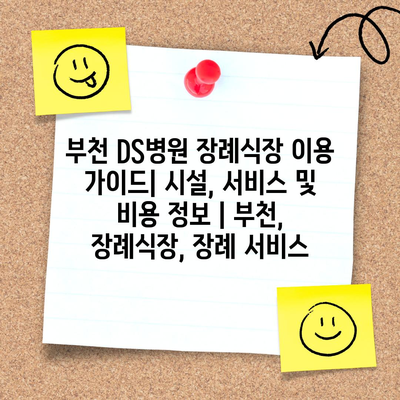 부천 DS병원 장례식장 이용
가이드| 시설, 서비스 및
비용 정보 | 부천,
장례식장, 장례 서비스